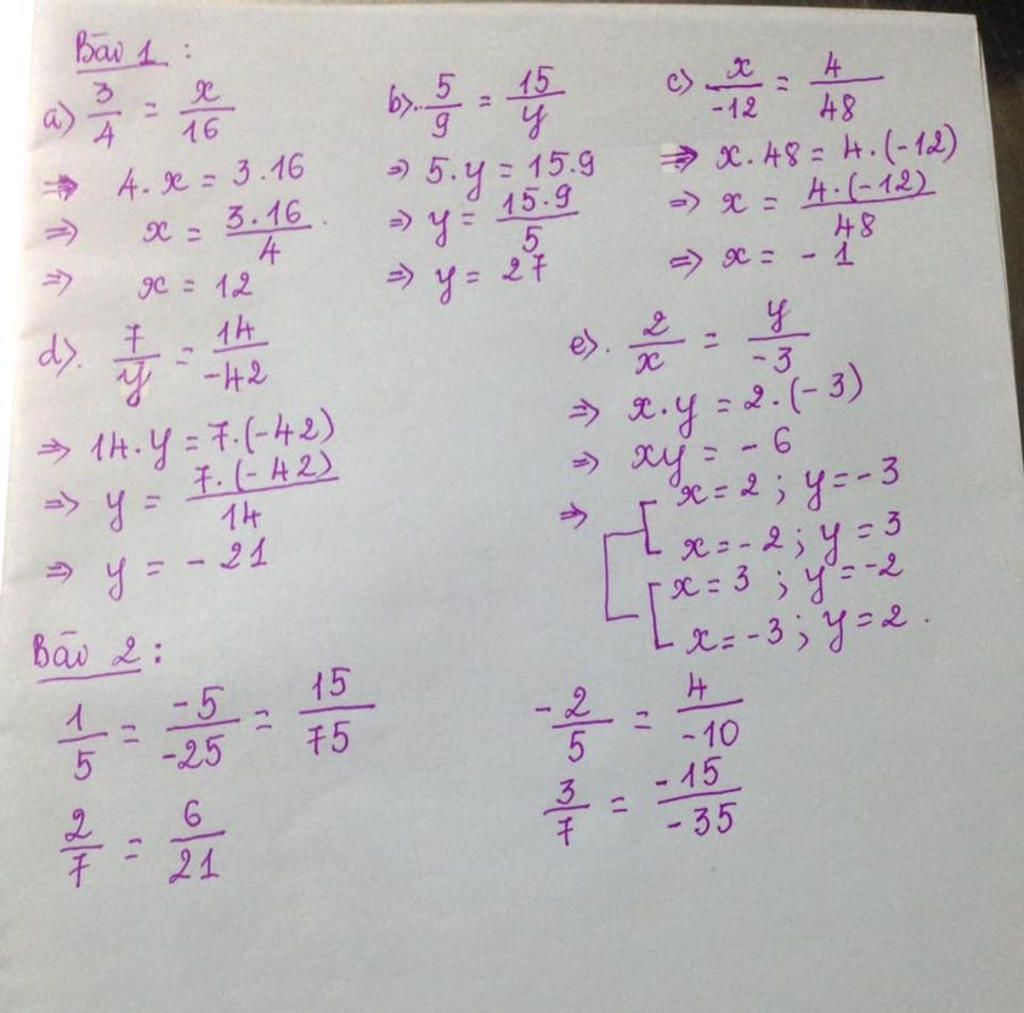 Bài 1 :
a) 3/4 = x/16
⇒ 4.x = 3.16
⇒ x = 3.16/4
⇒ x = 12
b) 5/9 = 15/y
⇒ 5.y = 15.9
⇒ y = 15.9/5
⇒ y = 27
c) x/-12 = 4/48
⇒ x.48 = 4.(-12)
⇒ x = 4.(-12)/48
⇒ x = -1
d). 7/y = 14/-42
⇒ 14.y = 7.(-42)
⇒ y = 7.(-42)/14
⇒ y = -21
e). 2/x = y/-3
⇒ x.y = 2.(-3)
⇒ xy = -6
⇒ x = 2 ; y = -3
x = -2 ; y = 3
x = 3 ; y = -2
x = -3 ; y = 2 .
Bài 2 :
1/5 = -5/-25 = 15/75
2/7 = 6/21
-2/5 = 4/-10
3/7 = -15/-35